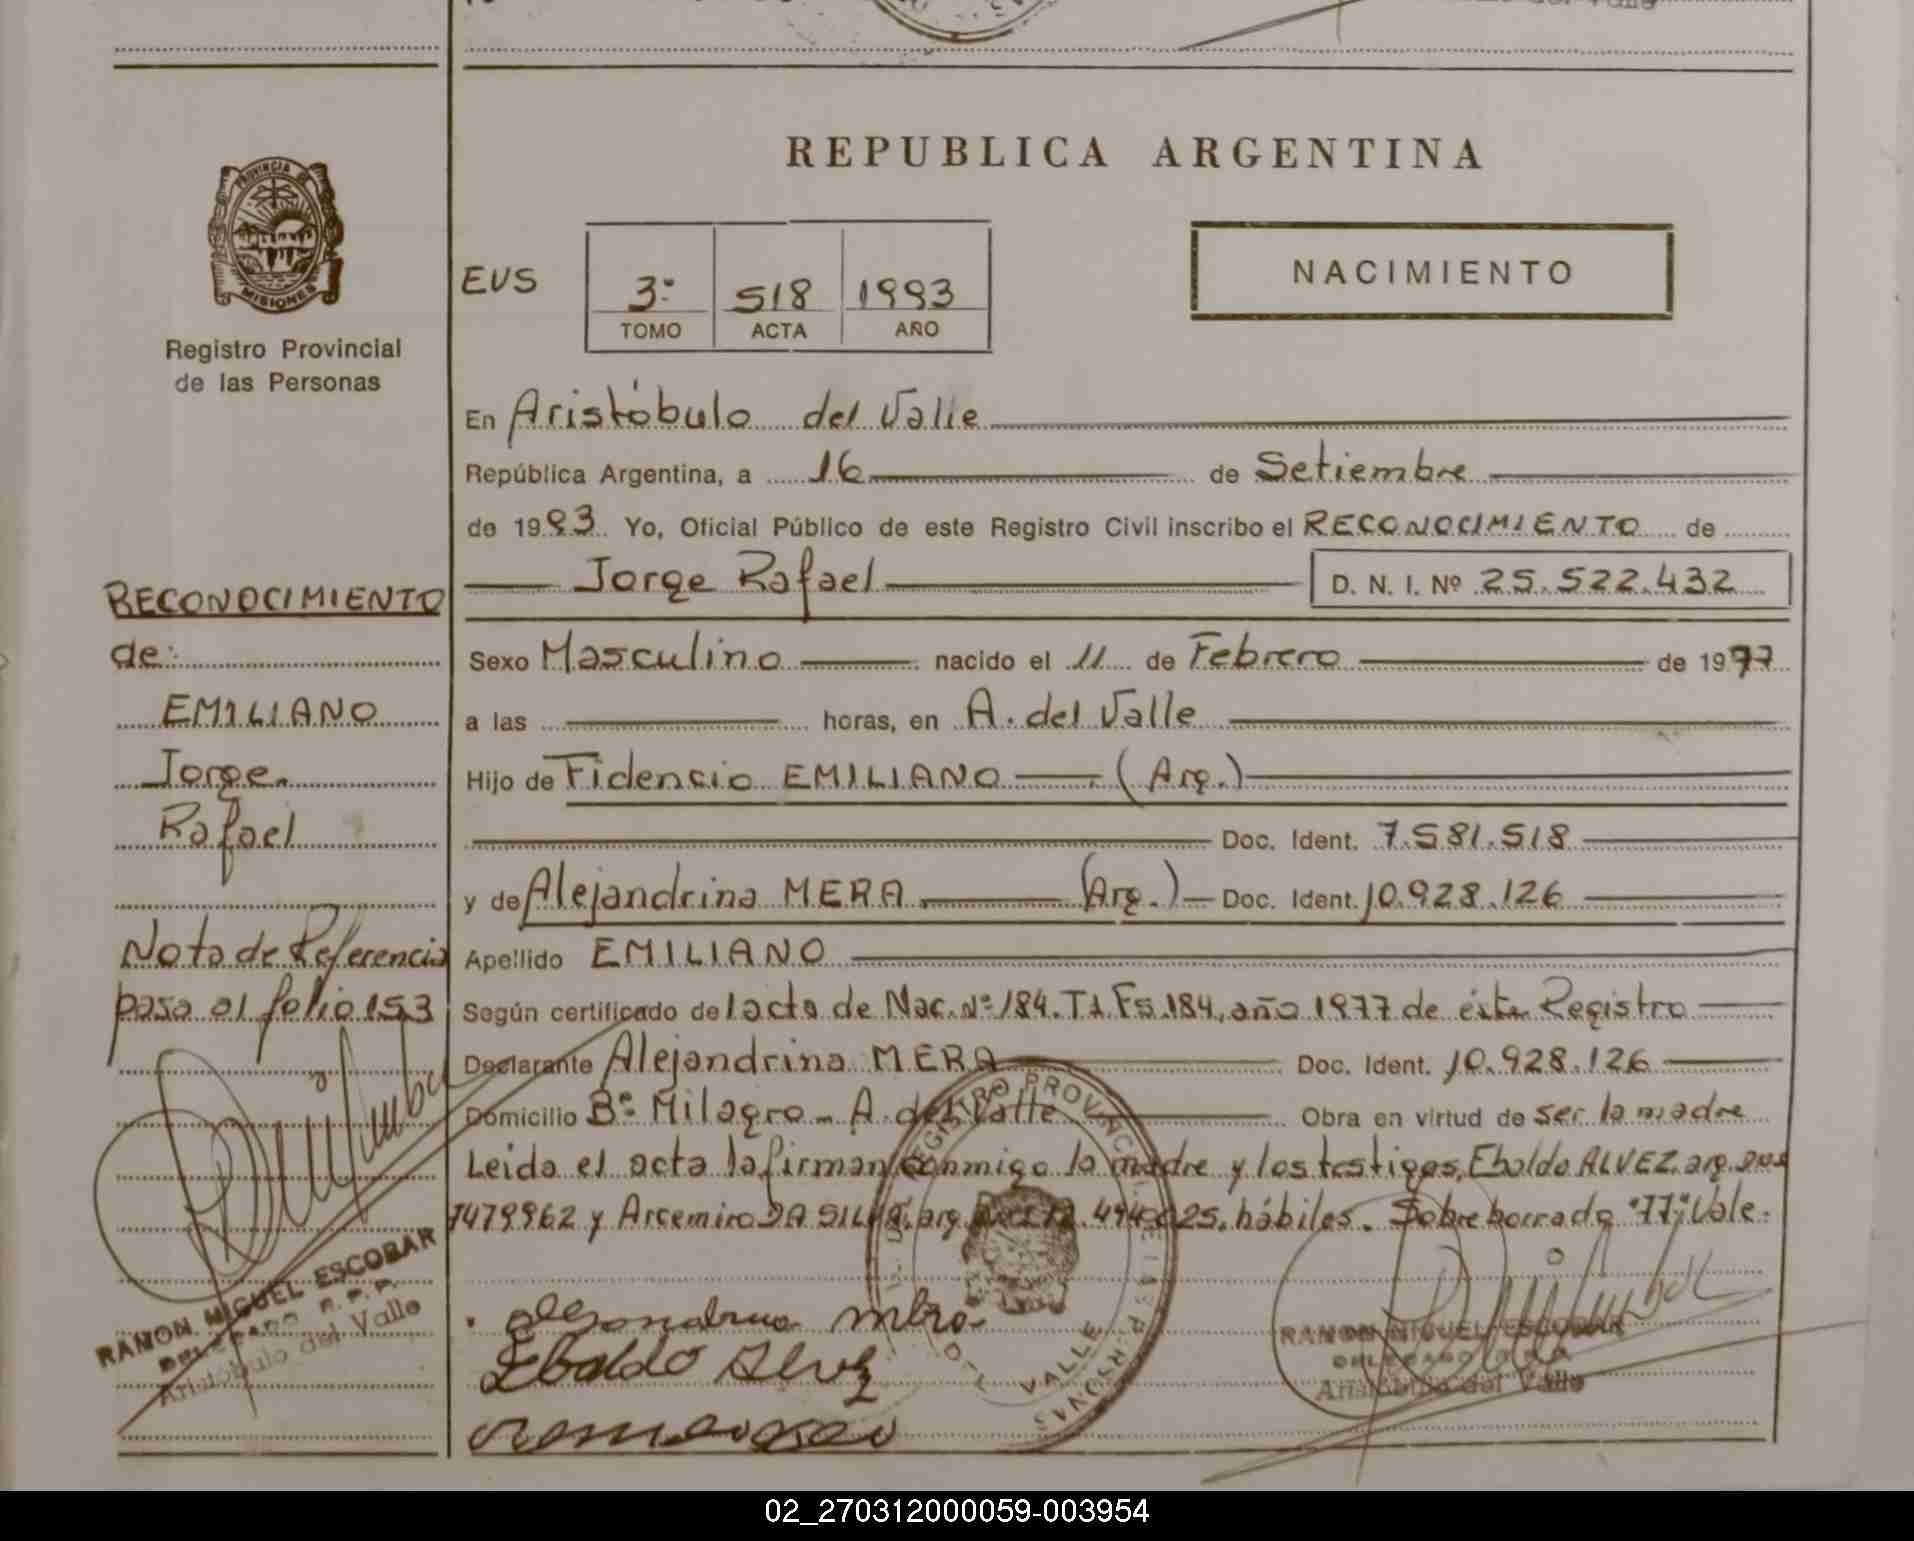 PROVINCIA DE
MISIONES
Registro Provincial
de las Personas
REPUBLICA ARGENTINA
EUS
3º 518 1993
TOMO ACTA AÑO
NACIMIENTO
En Aristóbulo del Valle
República Argentina, a 16 de Setiembre
de 1993 Yo, Oficial Público de este Registro Civil inscribo el RECONOCIMIENTO de
Jorge Rafael D. N. I. Nº 25.522.432
Sexo Masculino nacido el 11 de Febrero de 1977
a las horas, en A. del Valle
Hijo de Fidencio EMILIANO (Arg.)
Doc. Ident. 7.581.518
y de Alejandrina MERA (Arg.) Doc. Ident. 10.928.126
Apellido EMILIANO
Según certificado de l acta de Nac. Nº 184. T1 Fs 184, año 1977 de éste Registro
Declarante Alejandrina MERA Doc. Ident. 10.928.126
Domicilio Bº Milagro - A. del Valle Obra en virtud de ser la madre
Leida el acta la firman conmigo la madre y los testigos, Ebaldo ALVEZ, arg.
7479962 y Arcemiro DA SILVA, arg. hábiles. Sobreborrado "77" Vale.
Ebaldo Alvez
RAMON MIGUEL ESCOBAR
DELEGADO R.P.P.
Aristóbulo del Valle
RECONOCIMIENTO
de:
EMILIANO
Jorge
Rafael
Nota de Referencia
pasa al folio 153
RAMON MIGUEL ESCOBAR
DELEGADO R.P.P.
Aristóbulo del Valle
REGISTRO PROVINCIAL DE LAS PERSONAS
VALLE
02_270312000059-003954